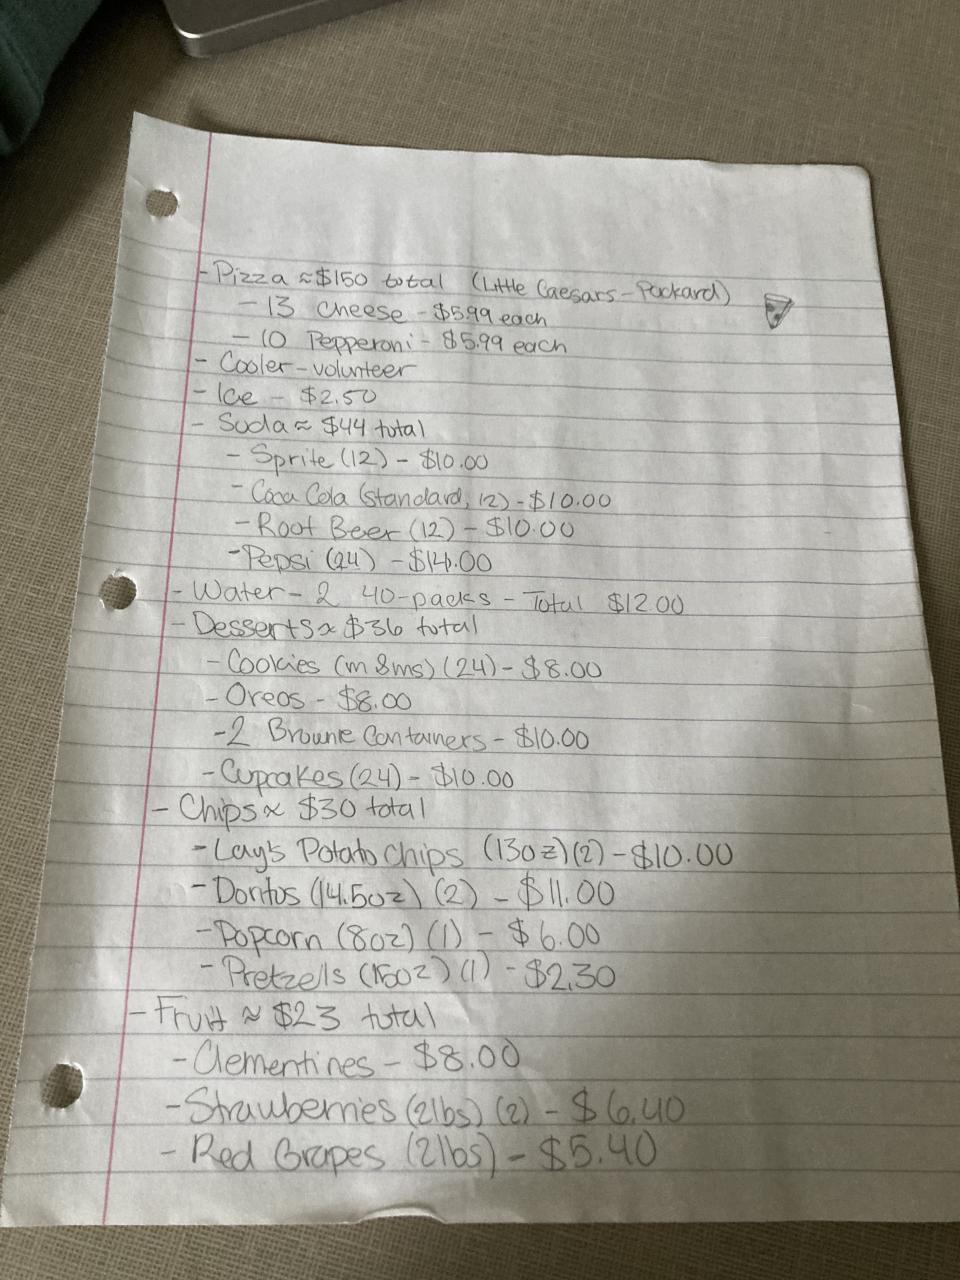 - Pizza ≈ $150 total (Little Caesars - Packard)
- 13 Cheese - $5.99 each
- 10 Pepperoni - $5.99 each
- Cooler - volunteer
- Ice - $2.50
- Soda ≈ $44 total
- Sprite (12) - $10.00
- Coca Cola (standard, 12) - $10.00
- Root Beer (12) - $10.00
- Pepsi (24) - $14.00
- Water - 2 40-packs - Total $12.00
- Desserts ≈ $36 total
- Cookies (m&ms) (24) - $8.00
- Oreos - $8.00
- 2 Brownie Containers - $10.00
- Cupcakes (24) - $10.00
- Chips ≈ $30 total
- Lay's Potato Chips (13oz) (2) - $10.00
- Doritos (14.5oz) (2) - $11.00
- Popcorn (8oz) (1) - $6.00
- Pretzells (15oz) (1) - $2.30
- Fruit ≈ $23 total
- Clementines - $8.00
- Strawberries (2lbs) (2) - $6.40
- Red Grapes (2lbs) - $5.40